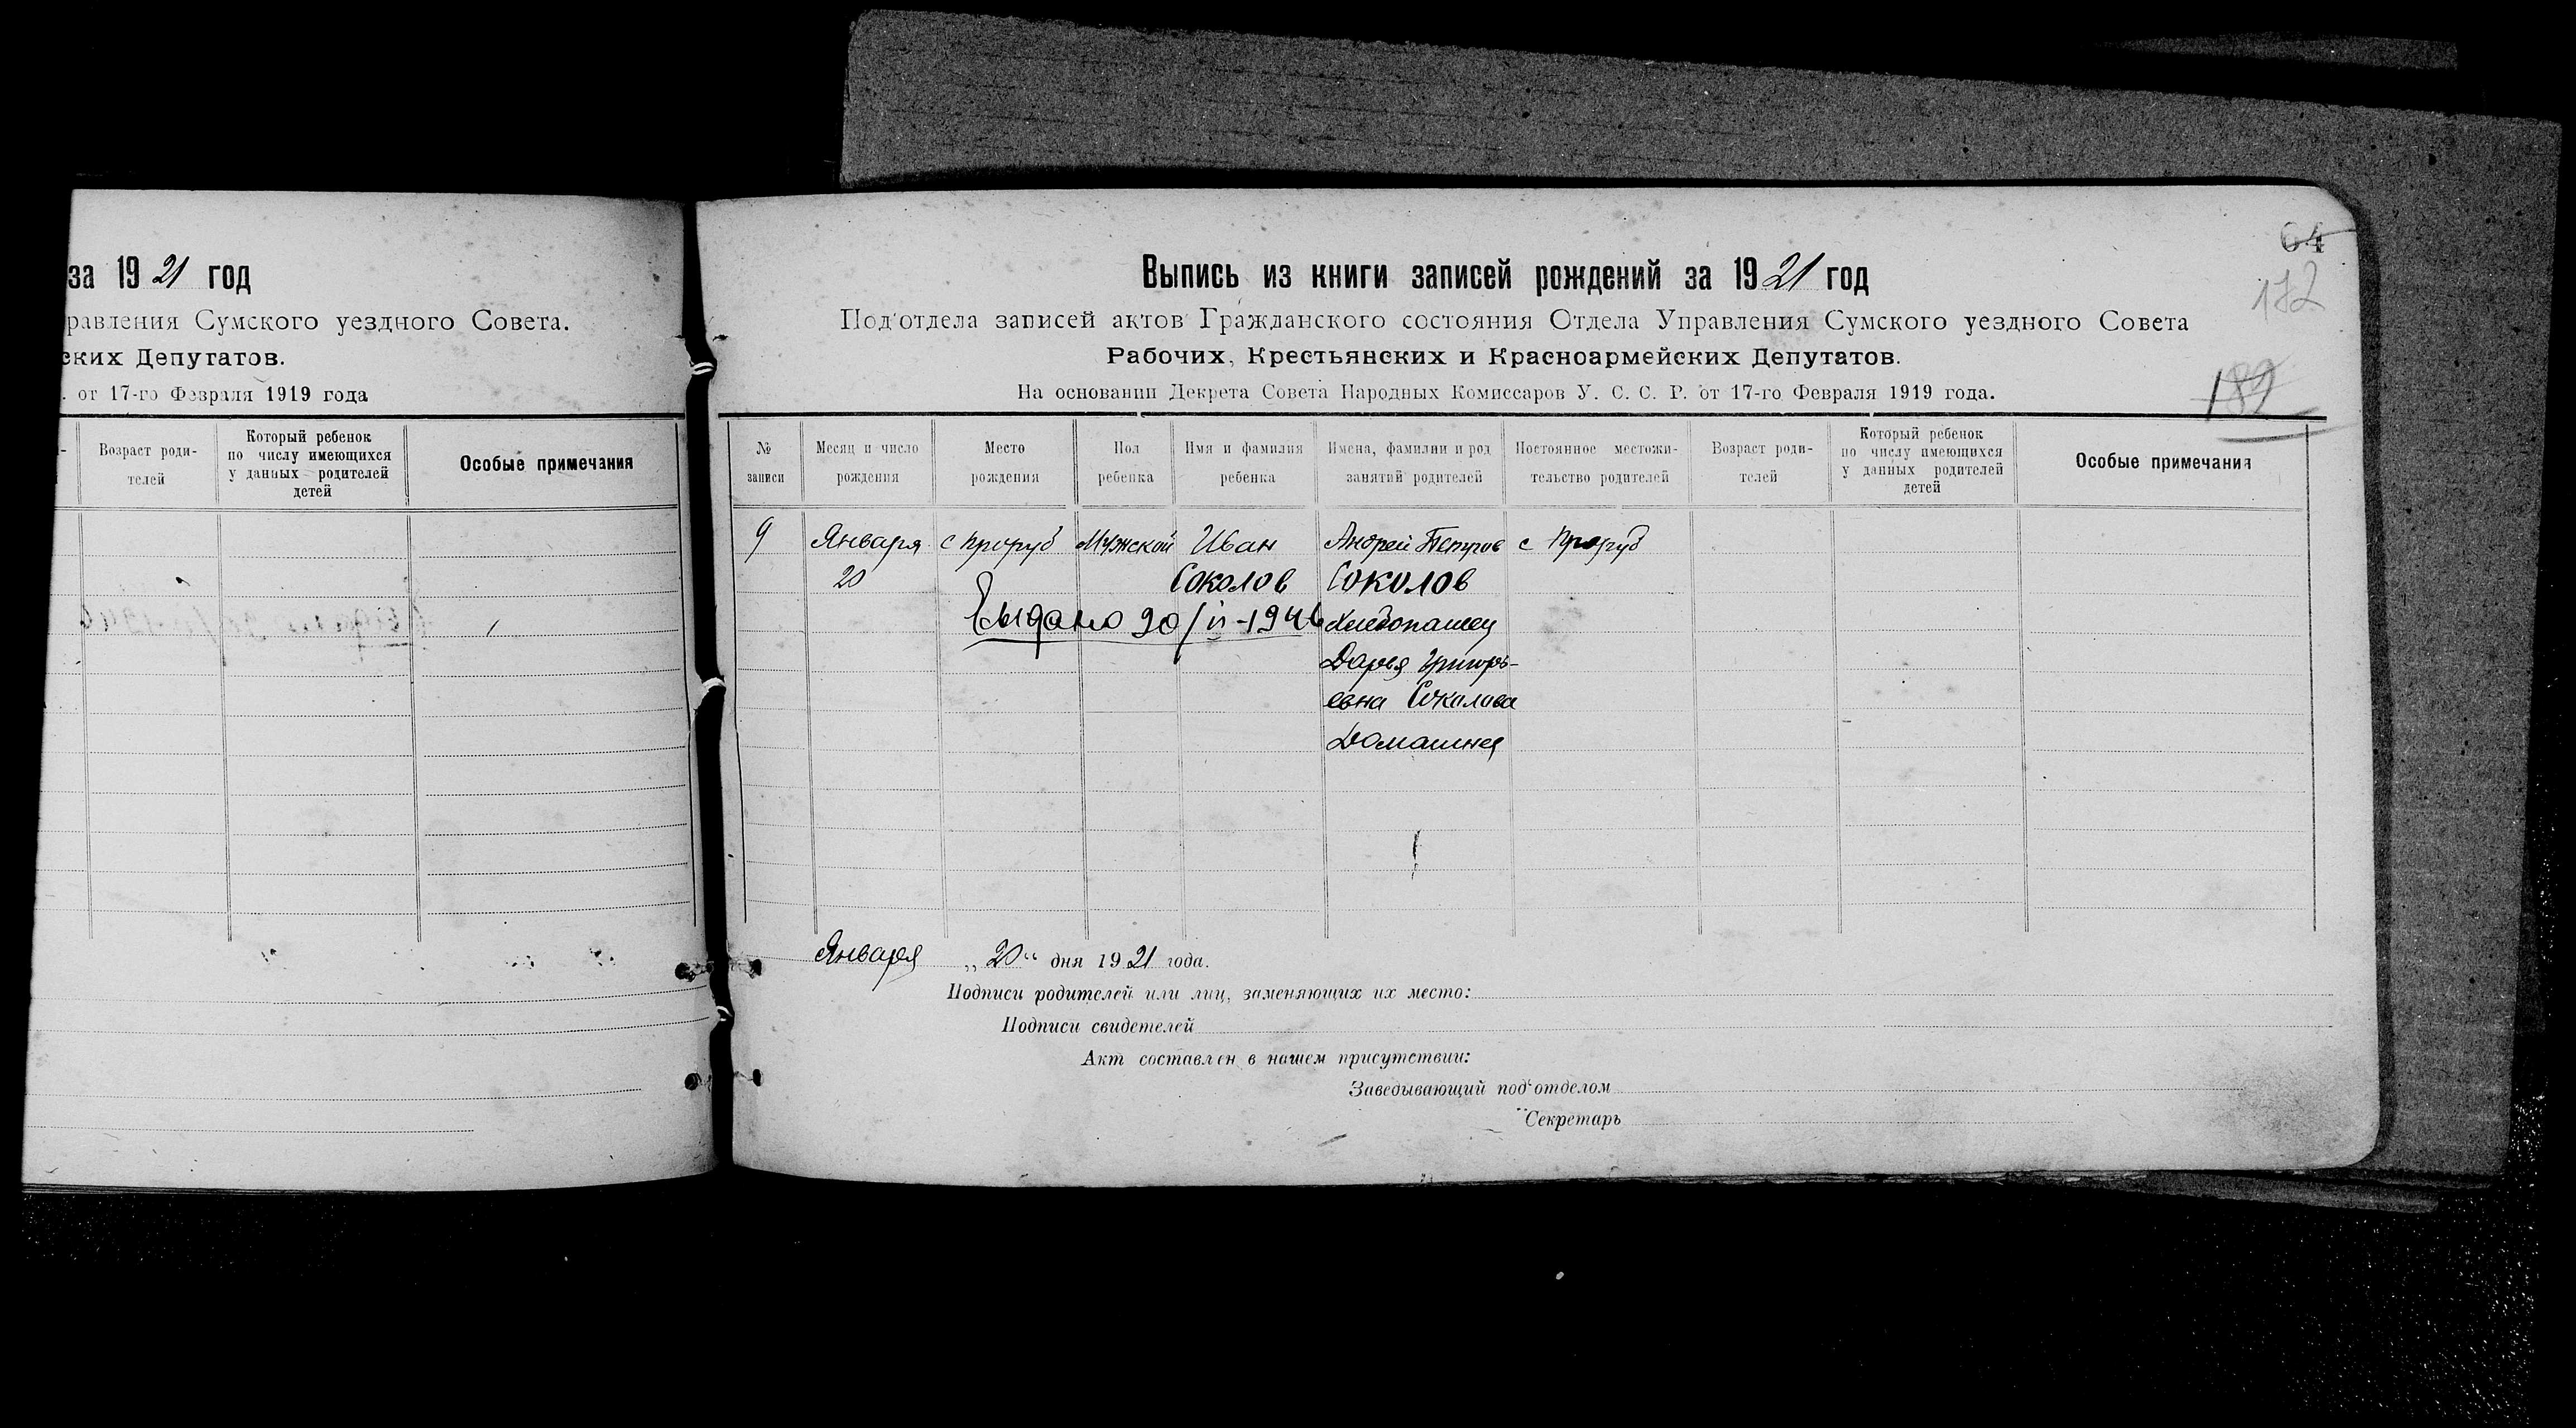 за 1921 год
равления Сумского уездного Совета.
ских Депутатов.
. от 17-го Февраля 1919 года
Возраст роди-
телей
Который ребенок
по числу имеющихся
у данных родителей
детей
Особые примечания
64
172
189
Выпись из книги записей рождений за 1921 год
Под'отдела записей актов Гражданского состояния Отдела Управления Сумского уездного Совета
Рабочих, Крестьянских и Красноармейских Депутатов.
На основании Декрета Совета Народных Комиссаров У. С. С. Р. от 17-го Февраля 1919 года.
№
записи
Месяц и число
рождения
Место
рождения
Пол
ребенка
Имя и фамилия
ребенка
Имена, фамилии и род
занятий родителей
Постоянное местожи-
тельство родителей
Возраст роди-
телей
Который ребенок
по числу имеющихся
у данных родителей
детей
Особые примечания
9 Января с Проруб Мужской Иван Андрей Петров с Проруб
20 Соколов Соколов
Выдано 20/II-1946 Хлебопашец
Дарья Григорь-
евна Соколова
Домашняя
Января „20“ дня 1921 года.
Подписи родителей или лиц, заменяющих их место:
Подписи свидетелей
Акт составлен в нашем присутствии:
Заведывающий под'отделом
Секретарь